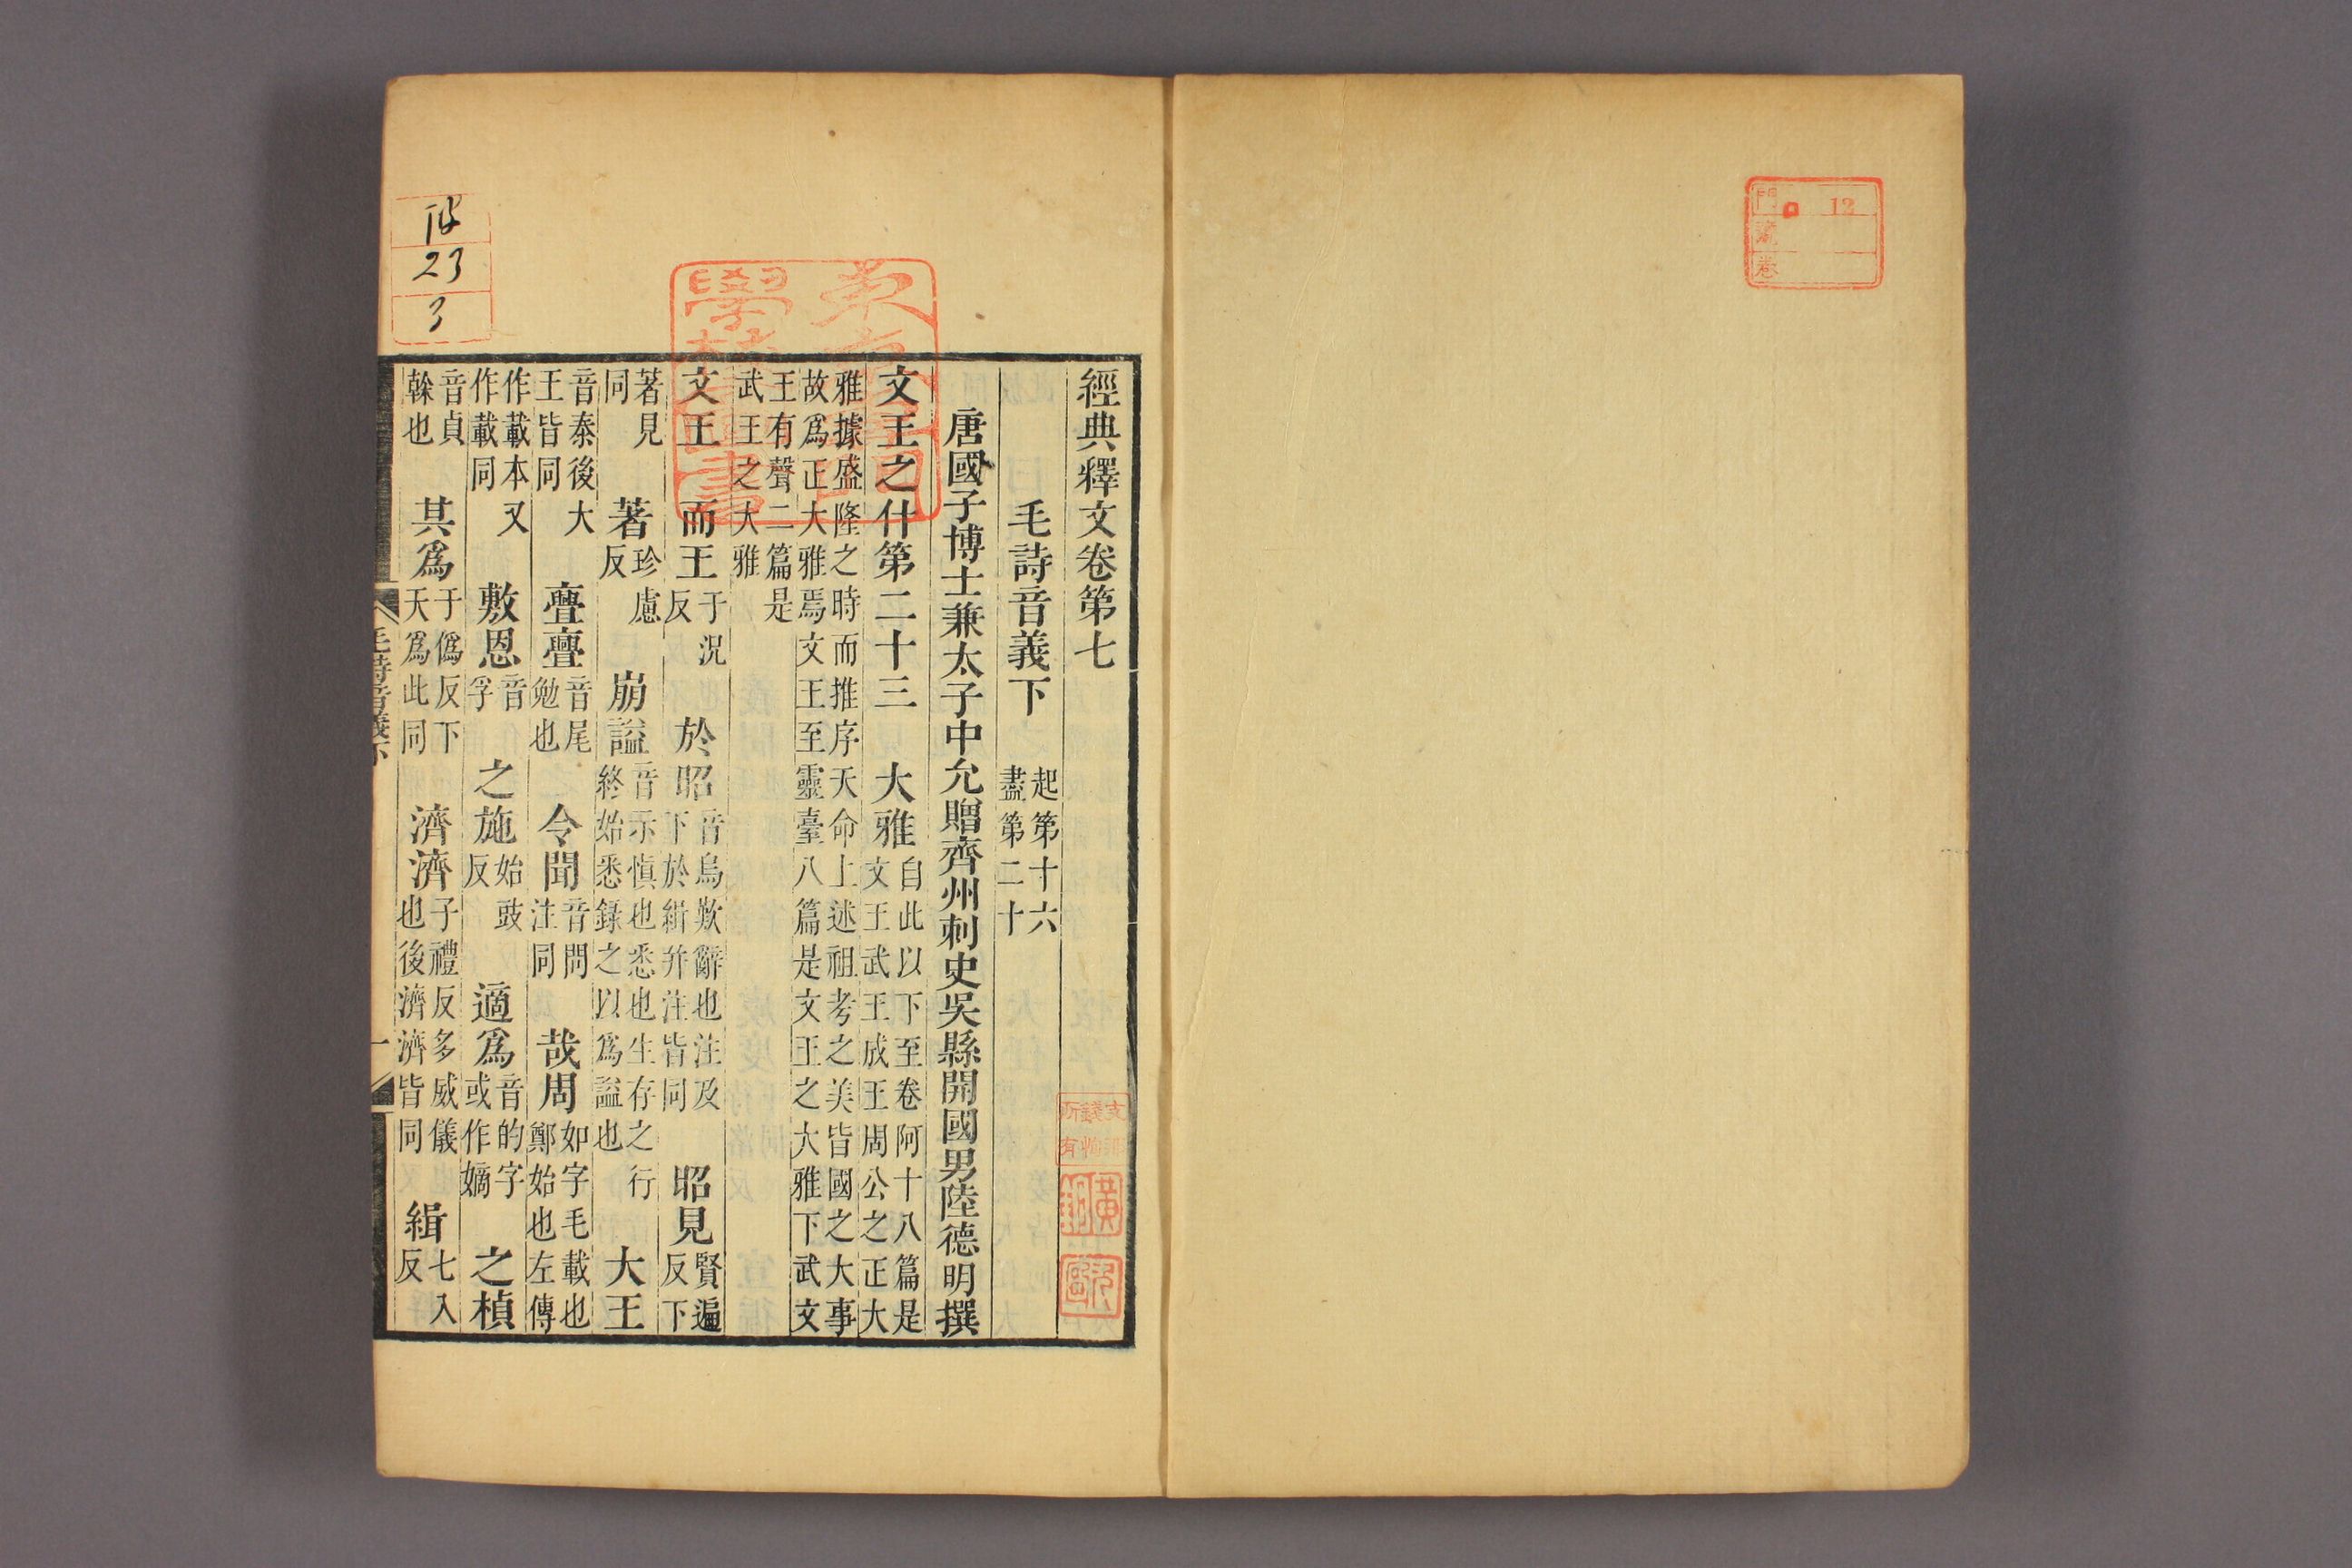 門 12
號
卷
經典釋文卷第七
毛詩音義下 起第十六盡第二十
唐國子博士兼太子中允贈齊州刺史吳縣開國男陸德明撰
文王之什第二十三 大雅 自此以下至卷阿十八篇是文王武王成王周公之正大
雅據盛隆之時而推序天命上述祖考之美皆國之大事故爲正大雅焉文王至靈臺八篇是文王之大雅下武文
王有聲二篇是武王之大雅
文王 而王 于況反 於昭 音烏歎辭也注及下於緝并注皆同 昭見 賢遍反下
著見同 著 珍慮反 崩謚 音示慎也悉也生存之行終始悉錄之以爲謚也 大王
音泰後大王皆同 亹亹 音尾勉也 令聞 音問注同 哉周 如字毛載也鄭始也左傳
作載本又作載同 敷恩 音孚 之施 始豉反 適爲 音的字或作嫡 之楨
音貞榦也 其爲 于僞反下天爲此同 濟濟 子禮反多威儀也後濟濟皆同 緝 七入反
毛詩音義下 一
23
3